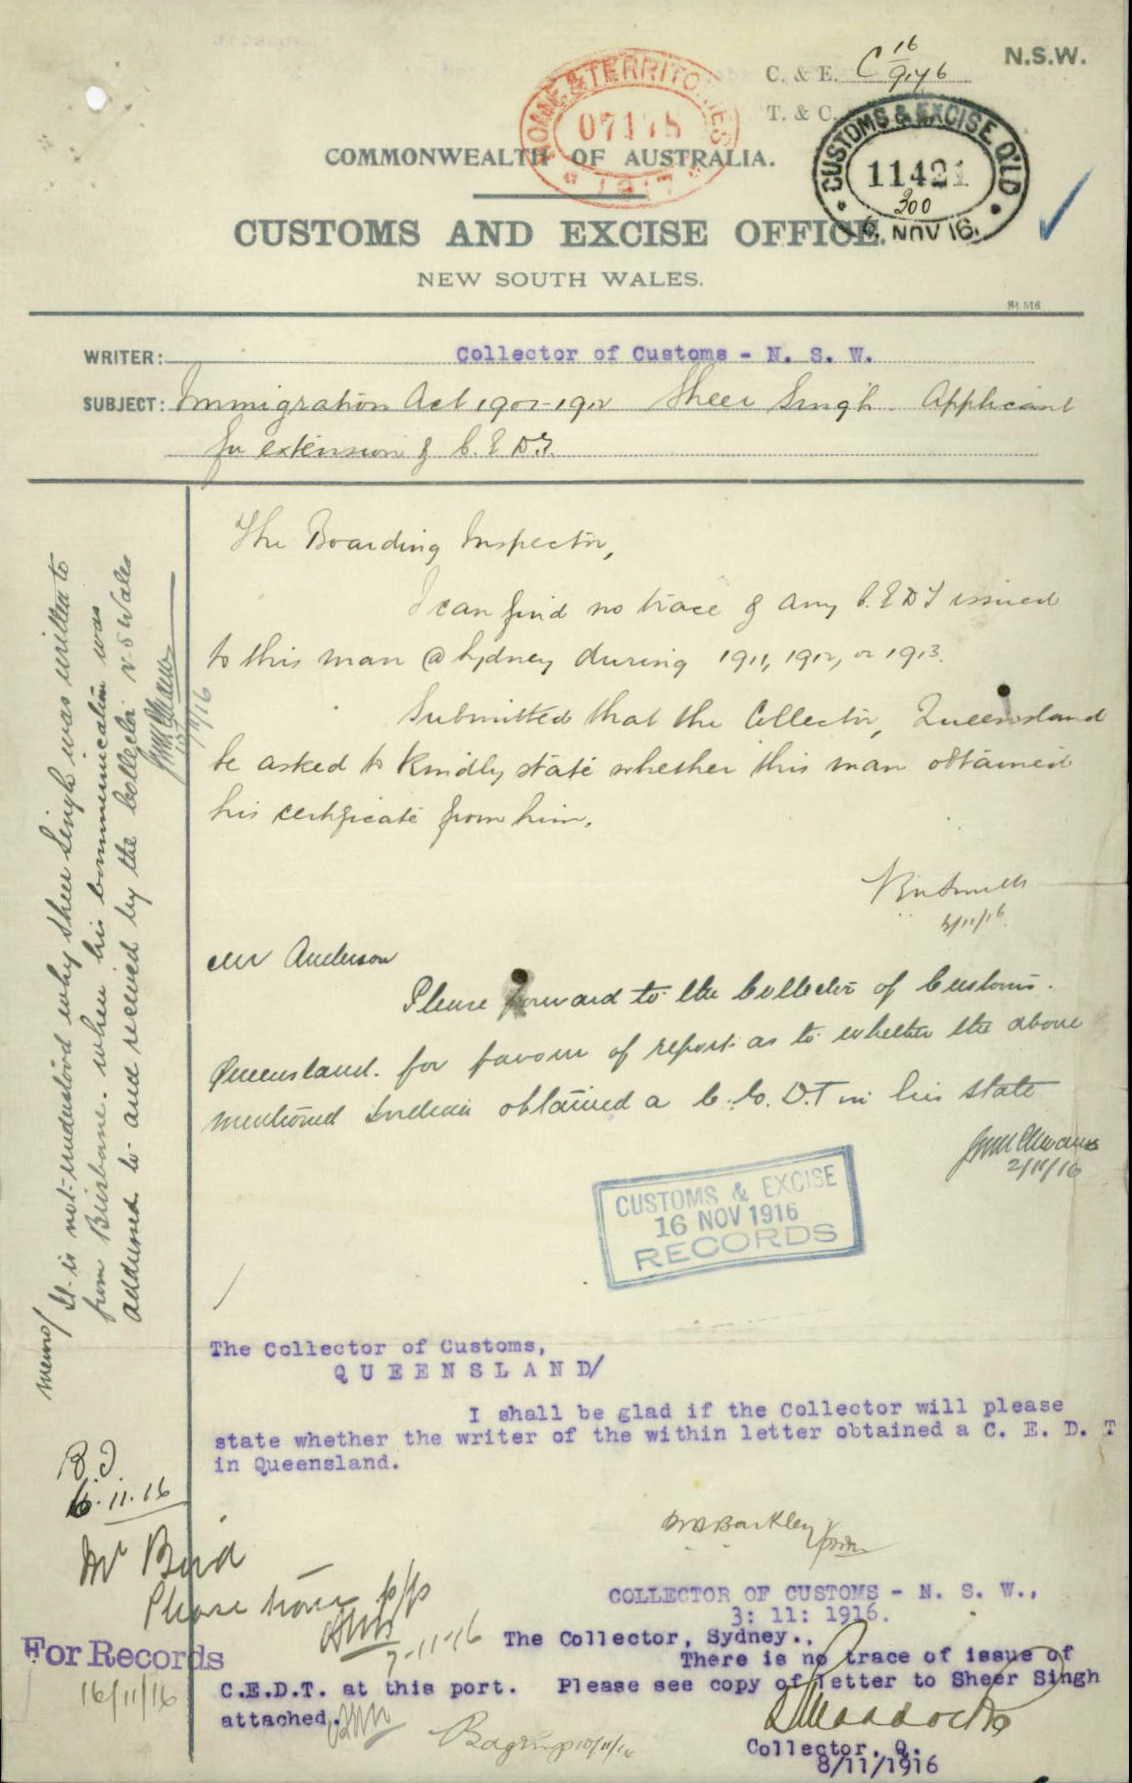 C. & E. C 16/9146
N.S.W.
T. & C.
HOME & TERRITORIES
07178
1917
CUSTOMS & EXCISE Q'LD
11421
300
6. NOV 16.
COMMONWEALTH OF AUSTRALIA.
CUSTOMS AND EXCISE OFFICE.
NEW SOUTH WALES.
WRITER: Collector of Customs - N. S. W.
SUBJECT: Immigration Act 1901-1912 Sheer Singh. Applicant
for extension of C.E.D.T.
The Boarding Inspector,
I can find no trace of any C.E.D.T issued
to this man @ Sydney during 1911, 1912, or 1913.
Submitted that the Collector, Queensland
be asked to kindly state whether this man obtained
his certificate from him.
/11/16
Mr Anderson
Please forward to the Collector of Customs.
Queensland. for favour of report as to whether the above
mentioned Indian obtained a C.E.D.T in his state
2/11/16
CUSTOMS & EXCISE
16 NOV 1916
RECORDS
Memo/
It is not understood why Sheer Singh was written to
from Brisbane. when his communication was
addressed to and received by the Collector N.S Wales
The Collector of Customs,
QUEENSLAND/
I shall be glad if the Collector will please
state whether the writer of the within letter obtained a C. E. D. T
in Queensland.
B.I.
6.11.16
Mr Bird
Please
7-11-16
For Records
16/11/16
W Barkley
COLLECTOR OF CUSTOMS - N. S. W.,
3: 11: 1916.
The Collector, Sydney.,
There is no trace of issue of
C.E.D.T. at this port. Please see copy of letter to Sheer Singh
attached.
Collector. Q.
8/11/1916